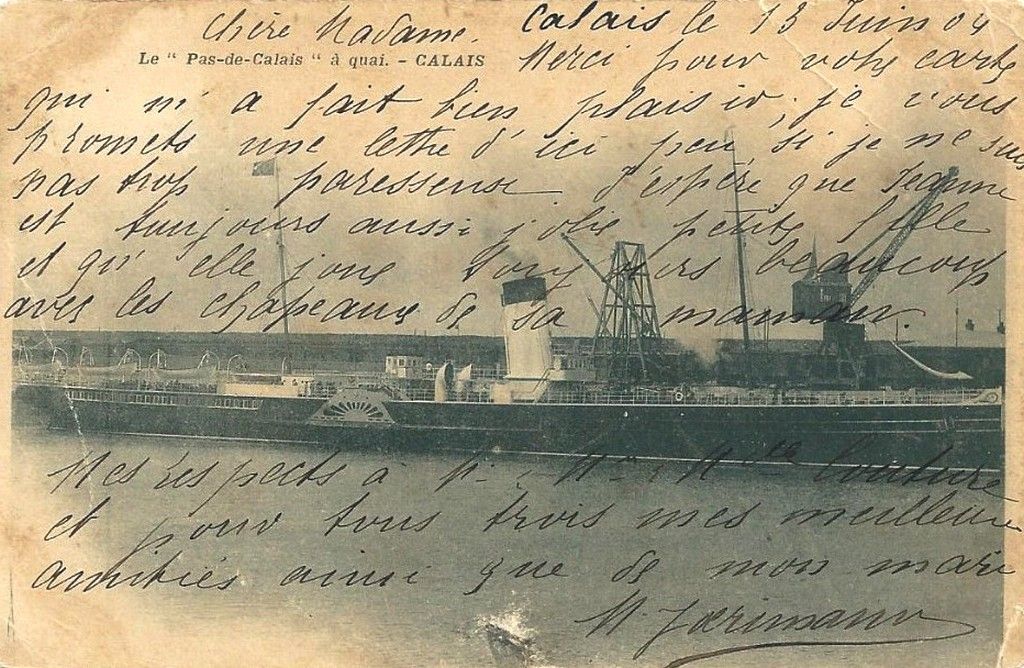 Chère Madame. Calais le 13 Juin 04
Le " Pas-de-Calais " à quai. - CALAIS
Merci pour votre carte
qui m'a fait bien plaisir, je vous
promets une lettre d'ici peu si je ne suis
pas trop paresseuse J'espère que Jeanne
est toujours aussi jolie petite fille
et qu'elle joue toujours beaucoup
avec les chapeaux de sa maman.
Mes respects à M. Mme Melle Couture
et pour tous trois mes meilleures
amitiés ainsi que de mon mari
M.